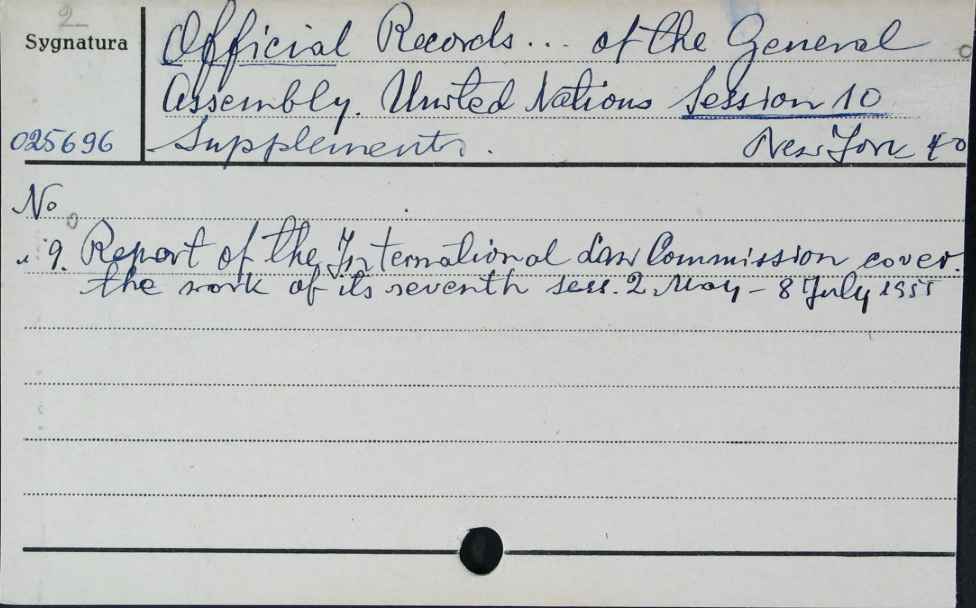 2
Sygnatura
Official Records... of the General
Assembly. United Nations Session 10
025696
Supplements. New York 4o
No
" 9. Report of the International Law Commission cover.
the work of its seventh sess. 2 May – 8 July 1955